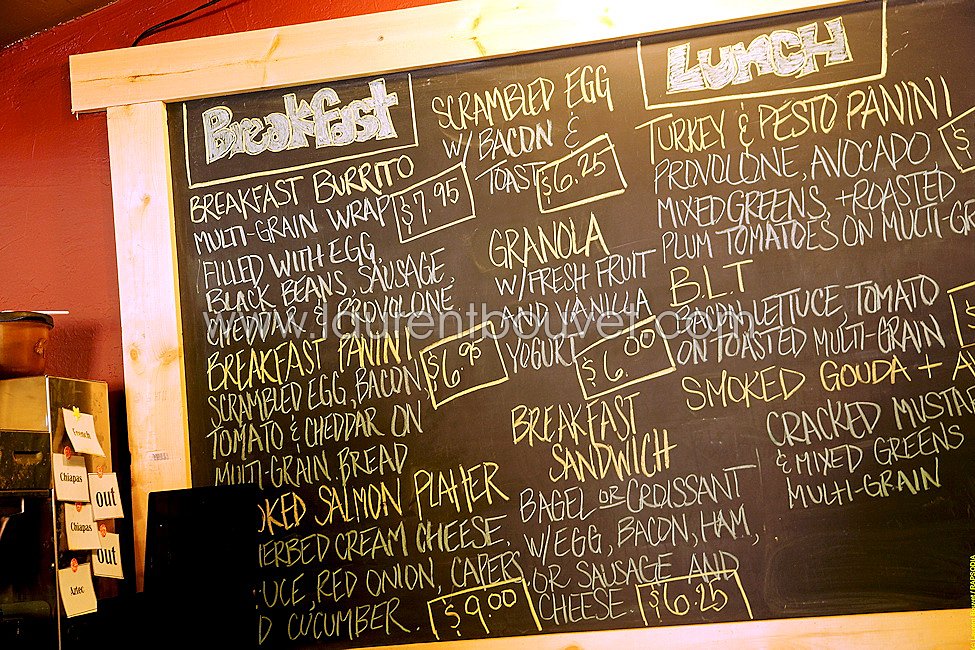 Breakfast
BREAKFAST BURRITO
MULTI-GRAIN WRAP $7.95
FILLED WITH EGG,
BLACK BEANS, SAUSAGE,
CHEDDAR & PROVOLONE
BREAKFAST PANINI
$6.95
SCRAMBLED EGG, BACON,
TOMATO & CHEDDAR ON
MULTI-GRAIN BREAD
OKED SALMON PLATTER
ERBED CREAM CHEESE,
UCE, RED ONION, CAPERS
D CUCUMBER. $9.00
SCRAMBLED EGG
W/ BACON &
TOAST $6.25
GRANOLA
W/FRESH FRUIT
AND VANILLA
YOGURT $6.00
BREAKFAST
SANDWICH
BAGEL OR CROISSANT
W/EGG, BACON, HAM,
OR SAUSAGE AND
CHEESE. $6.25
Lunch
TURKEY & PESTO PANINI
$
PROVOLONE, AVOCADO,
MIXED GREENS, + ROASTED
PLUM TOMATOES ON MULTI-G
B.L.T
BACON, LETTUCE, TOMATO
ON TOASTED MULTI-GRAIN
SMOKED GOUDA + A
CRACKED MUSTA
& MIXED GREENS
MULTI-GRAIN
www.laurentbouvet.com
French
Chiapas
out
Chiapas
out
Aztec